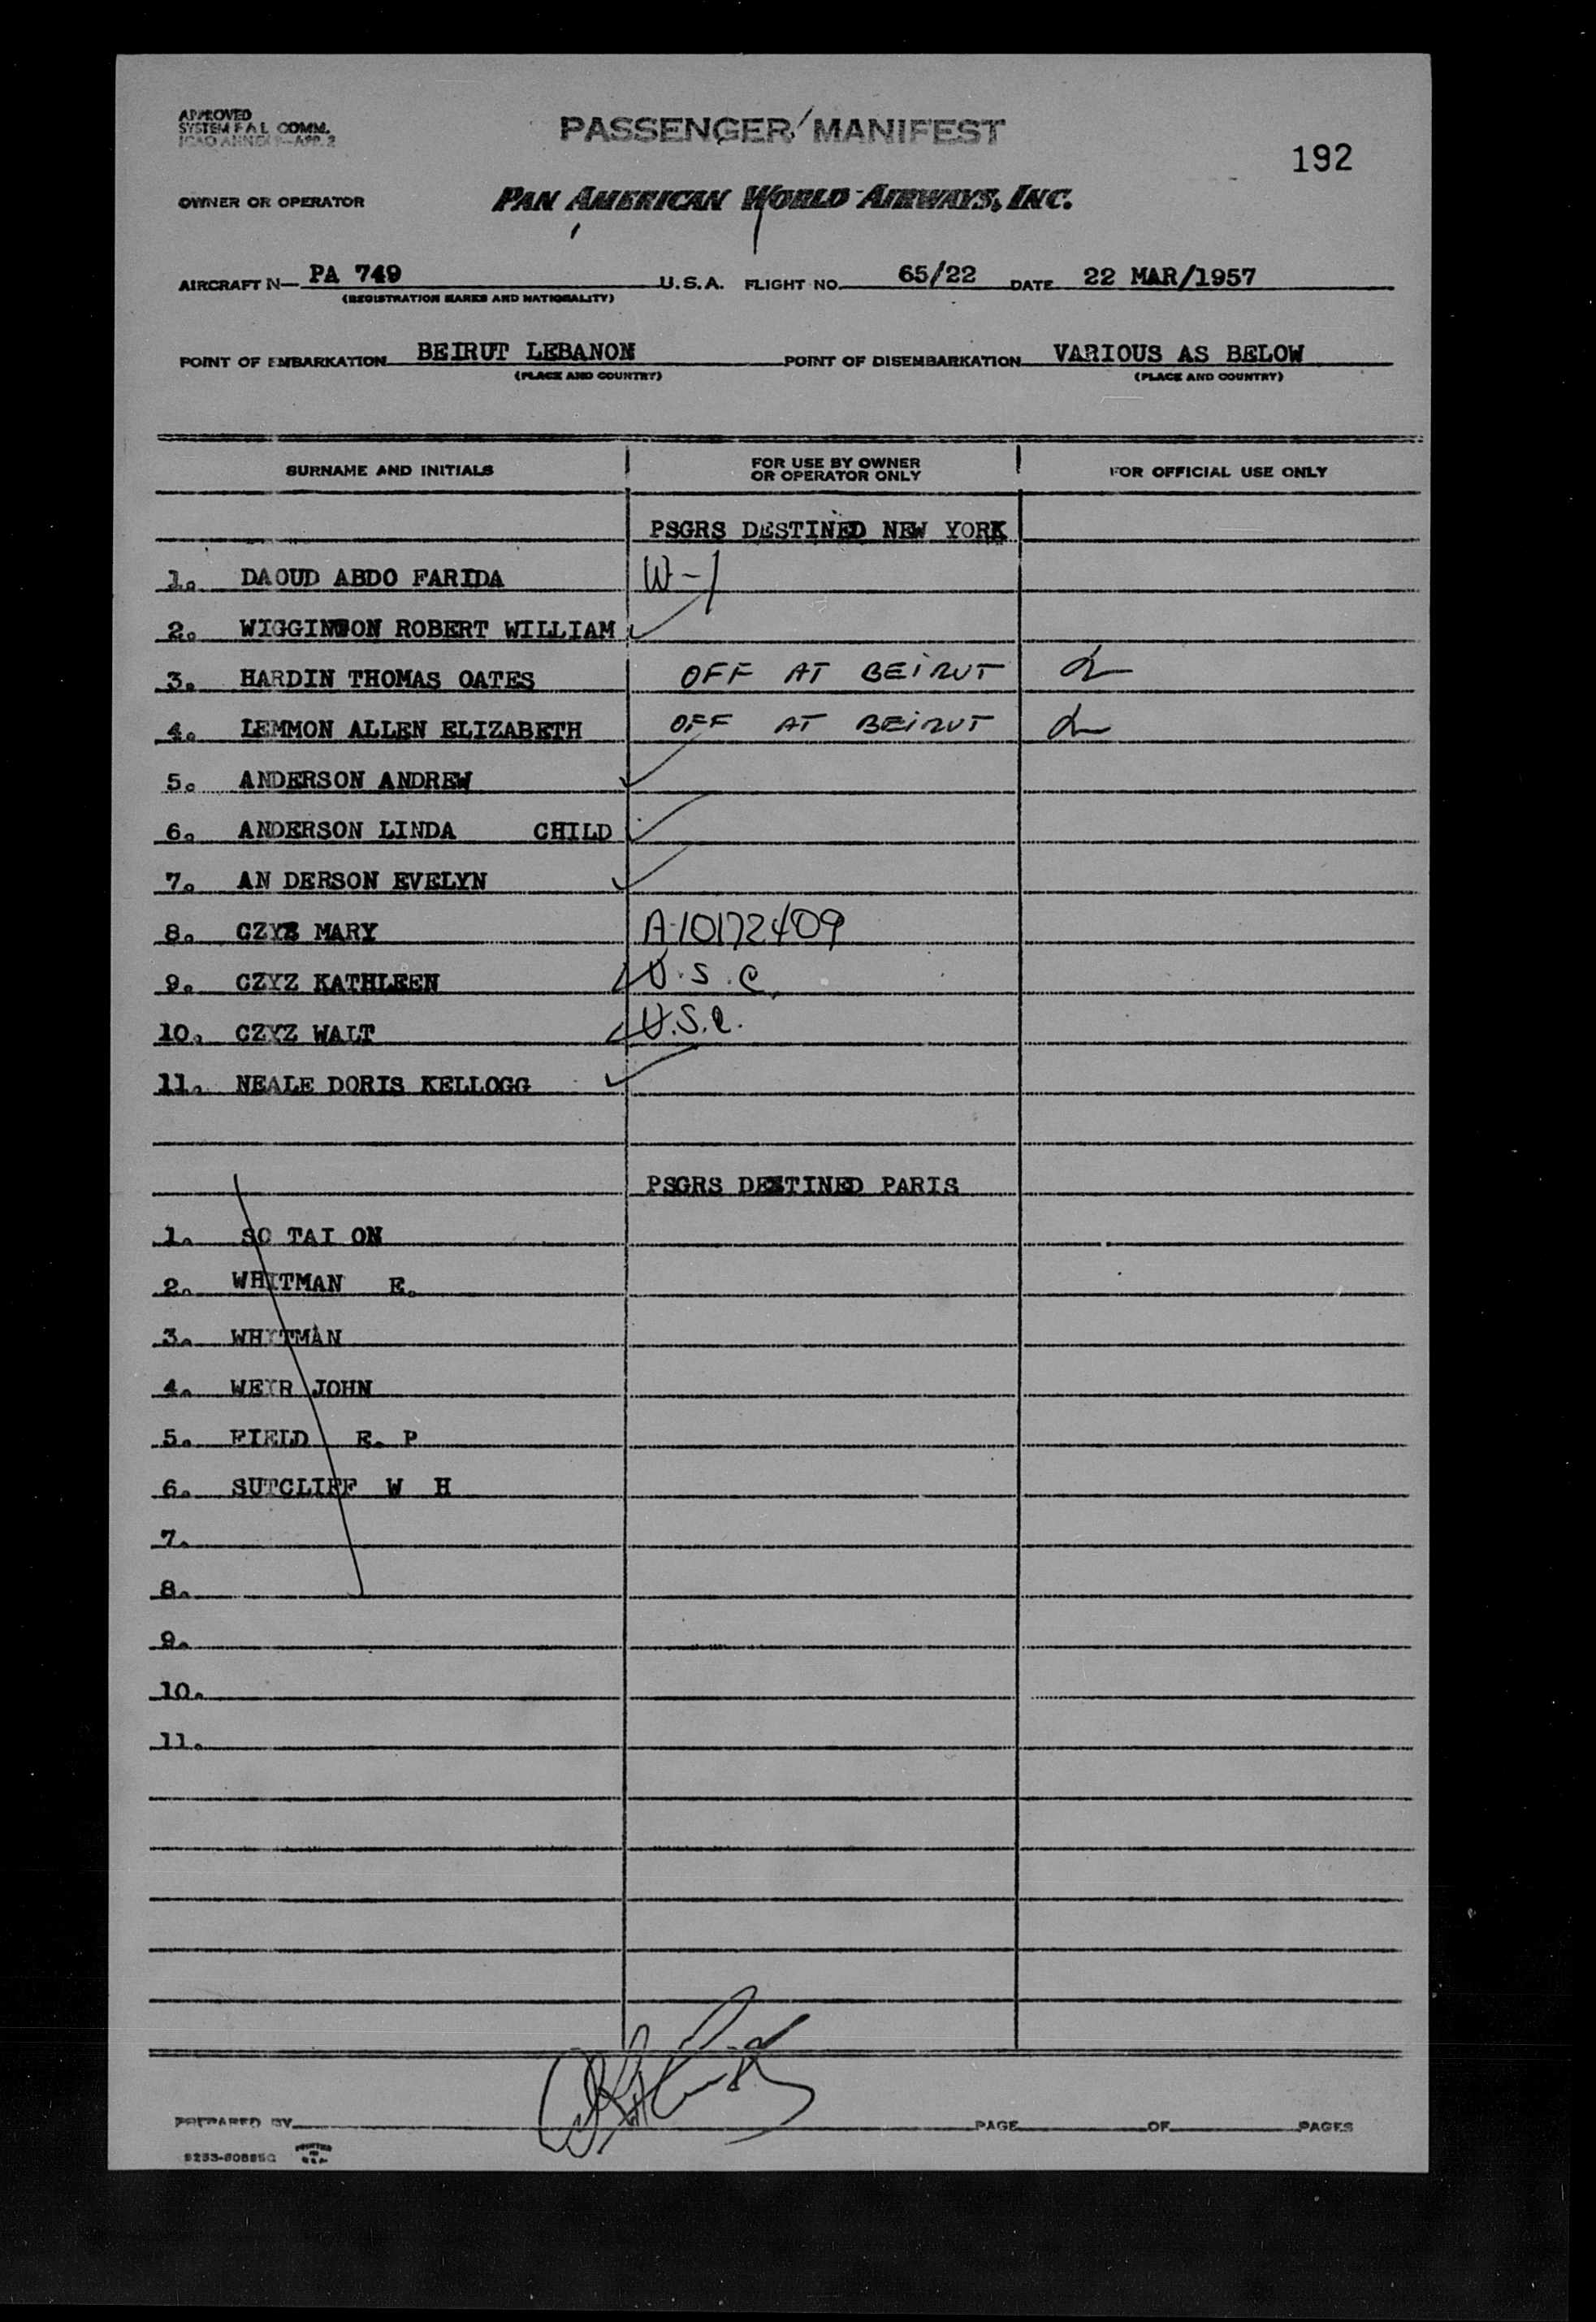 APPROVED
SYSTEM F A L COMM.
ICAO ANNEX 9—APP. 2
PASSENGER MANIFEST
192
OWNER OR OPERATOR PAN AMERICAN WORLD AIRWAYS, INC.
AIRCRAFT N— PA 749 U.S.A. FLIGHT NO. 65/22 DATE 22 MAR/1957
(REGISTRATION MARKS AND NATIONALITY)
POINT OF EMBARKATION BEIRUT LEBANON POINT OF DISEMBARKATION VARIOUS AS BELOW
(PLACE AND COUNTRY) (PLACE AND COUNTRY)
SURNAME AND INITIALS FOR USE BY OWNER OR OPERATOR ONLY FOR OFFICIAL USE ONLY
PSGRS DESTINED NEW YORK
1. DAOUD ABDO FARIDA W-1
2. WIGGINSON ROBERT WILLIAM
3. HARDIN THOMAS OATES OFF AT BEIRUT
4. LEMMON ALLEN ELIZABETH OFF AT BEIRUT
5. ANDERSON ANDREW
6. ANDERSON LINDA CHILD
7. AN DERSON EVELYN
8. CZYZ MARY A-10172409
9. CZYZ KATHLEEN U.S.C.
10. CZYZ WALT U.S.C.
11. NEALE DORIS KELLOGG
PSGRS DESTINED PARIS
1. SO TAI ON
2. WHITMAN E.
3. WHITMAN
4. WEIR JOHN
5. FIELD E. P
6. SUTCLIFF W H
7.
8.
9.
10.
11.
PREPARED BY PAGE OF PAGES
PRINTED IN U.S.A.